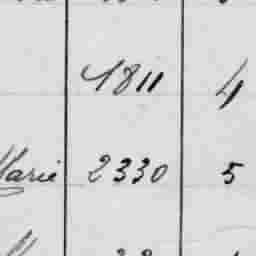 1811 4
Marie 2330 5